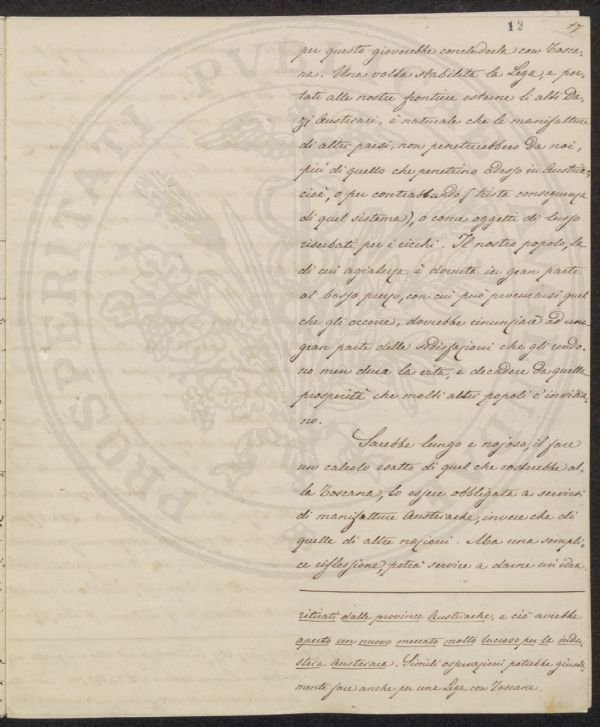 12 17
per questo gioverebbe concluderla con Tosca-
na. Una volta stabilita la Lega, e por-
tati alle nostre frontiere esterne li alti Da-
zj Austriaci, è naturale che le manifatture
di altri paesi, non penetrerebbero da noi,
piu' di quello che penetrino adesso in Austria,
cioè, o per contrabbando (triste conseguenza
di quel sistema), o come oggetti di lusso
riserbati per i ricchi. Il nostro popolo, la
di cui agiatezza è dovuta in gran parte
al basso prezzo, con cui può procurarsi quel
che gli occorre, dovrebbe rinunziare ad una
gran parte delle sodisfazioni che gli rendo-
no men dura la vita, e decadere da quella
prosperità che molti altri popoli c'invidia-
no.
Sarebbe lungo e nojoso, il fare
un calcolo esatto di quel che costerebbe al-
la Toscana, lo essere obbligata a servirsi
di manifatture Austriache, invece che di
quelle di altre nazioni. Ma una sempli-
ce riflessione, potrà servire a darne un'idea.
ritirati dalle province Austriache, e ciò avrebbe
aperto un nuovo mercato molto lucroso per le indu-
stria Austriaca. Simili osservazioni potrebbe giusta-
mente fare anche per una Lega con Toscana.
PROSPERITATI PVBLICAE